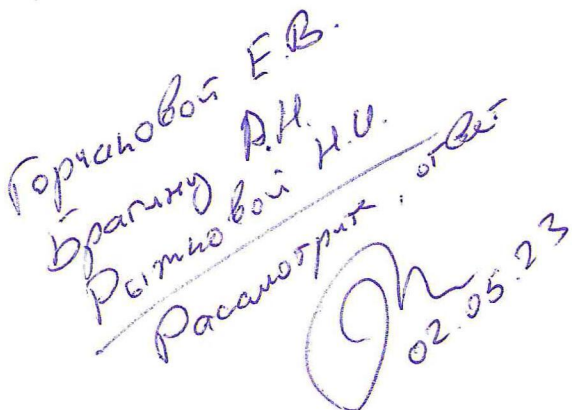 Горчаковой Е.В.
Брагину А.Н.
Рыжковой Н.И.
Рассмотрите, ответ
02.05.23